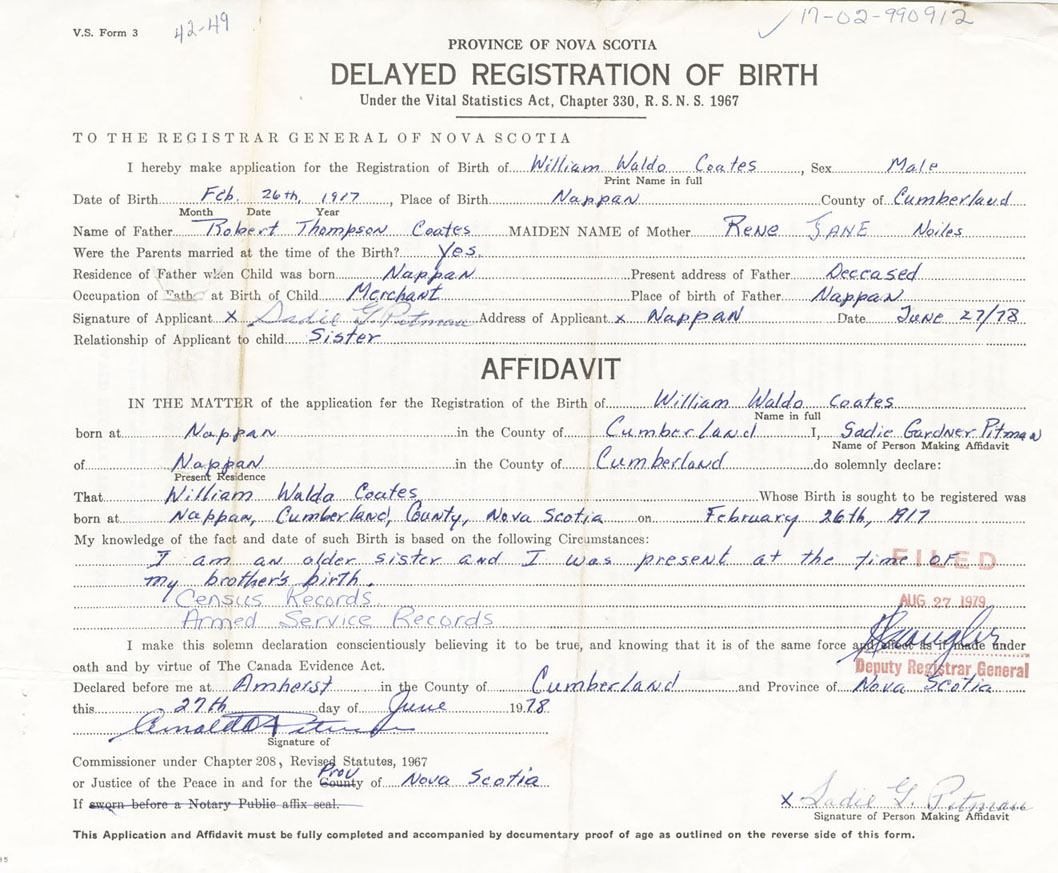 V.S. Form 3 42-49 17-02-990912
PROVINCE OF NOVA SCOTIA
DELAYED REGISTRATION OF BIRTH
Under the Vital Statistics Act, Chapter 330, R.S.N.S. 1967
TO THE REGISTRAR GENERAL OF NOVA SCOTIA
I hereby make application for the Registration of Birth of William Waldo Coates, Sex Male
Print Name in full
Date of Birth Feb. 26th, 1917, Place of Birth Nappan County of Cumberland
Month Date Year
Name of Father Robert Thompson Coates MAIDEN NAME of Mother Rene JANE Noiles
Were the Parents married at the time of the Birth? Yes.
Residence of Father when Child was born Nappan Present address of Father Deceased
Occupation of Father at Birth of Child Merchant Place of birth of Father Nappan
Signature of Applicant x Sadie G. Pitman Address of Applicant x Nappan Date June 27/78
Relationship of Applicant to child Sister
AFFIDAVIT
IN THE MATTER of the application for the Registration of the Birth of William Waldo Coates
Name in full
born at Nappan in the County of Cumberland I, Sadie Gardner Pitman
Name of Person Making Affidavit
of Nappan in the County of Cumberland do solemnly declare:
Present Residence
That William Waldo Coates Whose Birth is sought to be registered was
born at Nappan, Cumberland, County, Nova Scotia on February 26th, 1917
My knowledge of the fact and date of such Birth is based on the following Circumstances:
I am an older sister and I was present at the time of
FILED
my brother's birth.
Census Records
AUG 27 1979
Armed Service Records
I make this solemn declaration conscientiously believing it to be true, and knowing that it is of the same force and effect as if made under
oath and by virtue of The Canada Evidence Act.
Deputy Registrar General
Declared before me at Amherst in the County of Cumberland and Province of Nova Scotia
this 27th day of June 1978
Signature of
Commissioner under Chapter 208, Revised Statutes, 1967
Prov
or Justice of the Peace in and for the County of Nova Scotia
If sworn before a Notary Public affix seal.
x Sadie G. Pitman
Signature of Person Making Affidavit
This Application and Affidavit must be fully completed and accompanied by documentary proof of age as outlined on the reverse side of this form.